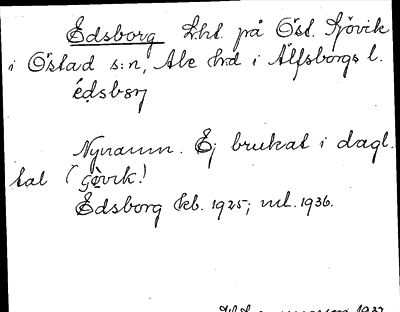 Edsborg Lht. på Öst. Sjövik
i Östad s:n, Ale hd i Älfsborgs l.
edsbɔrj
Nynamn. Ej brukat i dagl.
tal
Edsborg kb. 1925; ml. 1936.